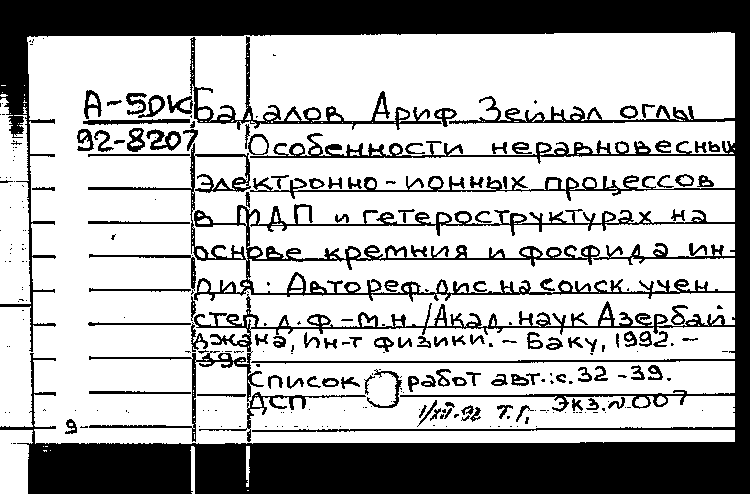 А-5DK Бадалов, Ариф Зейнал оглы
92-8207 Особенности неравновесных
электронно-ионных процессов
в МДП и гетероструктурах на
основе кремния и фосфида ин-
дия: Автореф. дис. на соиск. учен.
степ. д. ф.-м.н. / Акад. наук Азербай-
джана, Ин-т физики. - Баку, 1992. -
39с.
Список работ авт.: с. 32-39.
ДСП Экз. N 007
1/XII-92 Т.Г.
9